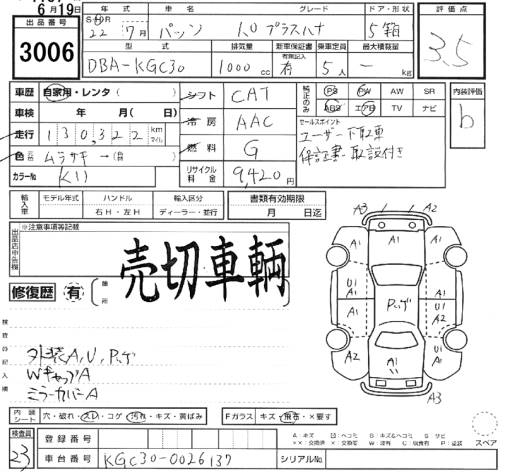 6月19日
出品番号
3006
年式 車名 グレード ドア・形状
22年 7月 パッソ 1.0 プラスハナ 5箱
型式 排気量 新車保証書 乗車定員 最大積載量
DBA-KGC30 1000cc 有 5人 - kg
評価点
3.5
車歴 自家用・レンタ( )
車検 年 月( 日)
走行 130,322 km マイル
色 ムラサキ →( )
カラーNo K11
シフト CAT
冷房 AAC
燃料 G
リサイクル料金 9,420円
純正のみ PS PW AW SR
ABS エアB TV ナビ
内装評価
b
セールスポイント
ユーザー下取車
保証書 取説付き
輸入車 モデル年式 ハンドル 輸入区分
右H・左H ディーラー・並行
書類有効期限
月 日迄
※注意事項等記載
売切車輌
修復歴 有 箇所
外装A,U,Pカゲ
WキャップA
ミラーカバーA
A3 A2
A1 A1 A1
U1 A1 U1 A1
A2 Pカゲ A2
A1 A1 A1
A3
内装シート 穴・破れ・スレ・コゲ・汚れ・キズ・黄ばみ
Fガラス キズ・飛石・×要す
スペア
検査員
23
登録番号
車台番号 KGC30-0026137
シリアルNo.